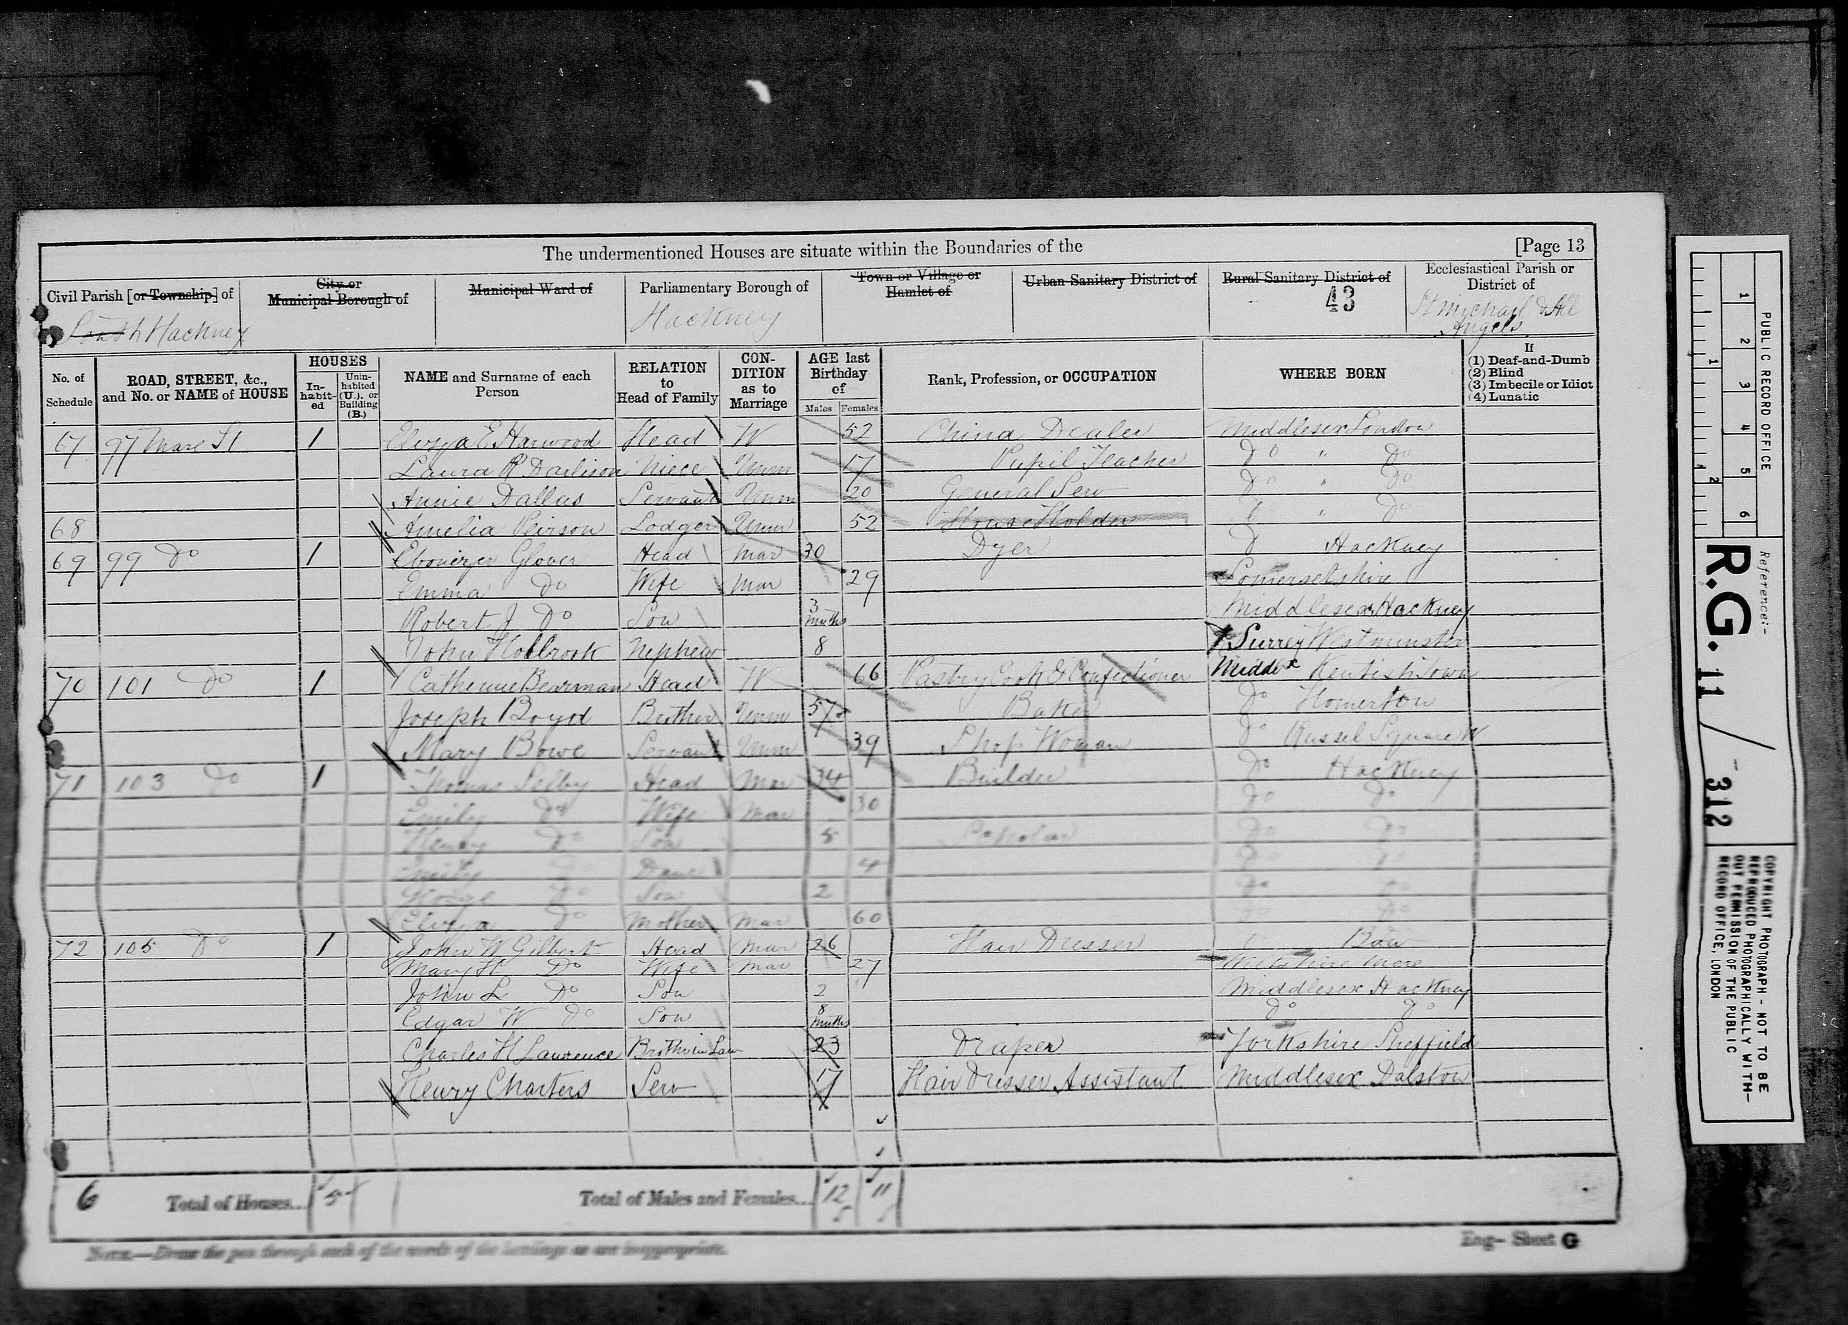 The undermentioned Houses are situate within the Boundaries of the [Page 13
Civil Parish [or Township] of City or Municipal Borough of Municipal Ward of Parliamentary Borough of Town or Village or Hamlet of Urban Sanitary District of Rural Sanitary District of Ecclesiastical Parish or District of
Hackney Hackney 43 St Michael & All Angels
No. of Schedule ROAD, STREET, &c., and No. or NAME of HOUSE HOUSES In-habit-ed Unin-habited (U.), or Building (B.) NAME and Surname of each Person RELATION to Head of Family CON-DITION as to Marriage AGE last Birthday of Males Females Rank, Profession, or OCCUPATION WHERE BORN If (1) Deaf-and-Dumb (2) Blind (3) Imbecile or Idiot (4) Lunatic
67 97 Mare St 1 Eliza E Harwood Head W 52 China Dealer Middlesex London
Laura R Darlison Niece Unm 17 Pupil Teacher Do " Do
Annie Dallas Servant Unm 20 General Serv Do " Do
68 Amelia Peirson Lodger Unm 52 House Holder " Do
69 99 Do 1 Ebenezer Glover Head Mar 30 Dyer Do Hackney
Emma Do Wife Mar 29 Somersetshire
Robert J Do Son 3 Mnths Middlesex Hackney
John Holbrook Nephew 8 Surrey Westminster
70 101 Do 1 Catherine Bearman Head W 66 Pastry Cook & Confectioner Middx Kentish Town
Joseph Boyd Brother Unm 57 Baker Do Homerton
Mary Bowe Servant Unm 39 Shop Woman Do Russel Square W
71 103 Do 1 Thomas Selby Head Mar 34 Builder Do Hackney
Emily Do Wife Mar 30 Do Do
Henry Do Son 5 Scholar Do Do
Emily Do Daur 4 Do Do
Do Son 2 Do Do
Eliza Do Mother Mar 60 Do Do
72 105 Do 1 John W Gilbert Head Mar 26 Hair Dresser Bow
Mary H Do Wife Mar 27 Wiltshire
John L Do Son 2 Middlesex Hackney
Edgar W Do Son 8 Mnths Do Do
Charles H Laurence Brother in Law 23 Draper Yorkshire Sheffield
Henry Charters Serv 17 Hair Dresser Assistant Middlesex Dalston
6 Total of Houses... 5 Total of Males and Females... 12 11
5 5
NOTE.—Draw the pen through such of the words of the headings as are inappropriate.
Eng— Sheet G
PUBLIC RECORD OFFICE
1 2 3 4 5 6
1 2
Reference:-
R.G. 11 / 312
COPYRIGHT PHOTOGRAPH - NOT TO BE
REPRODUCED PHOTOGRAPHICALLY WITH-
OUT PERMISSION OF THE PUBLIC
RECORD OFFICE, LONDON